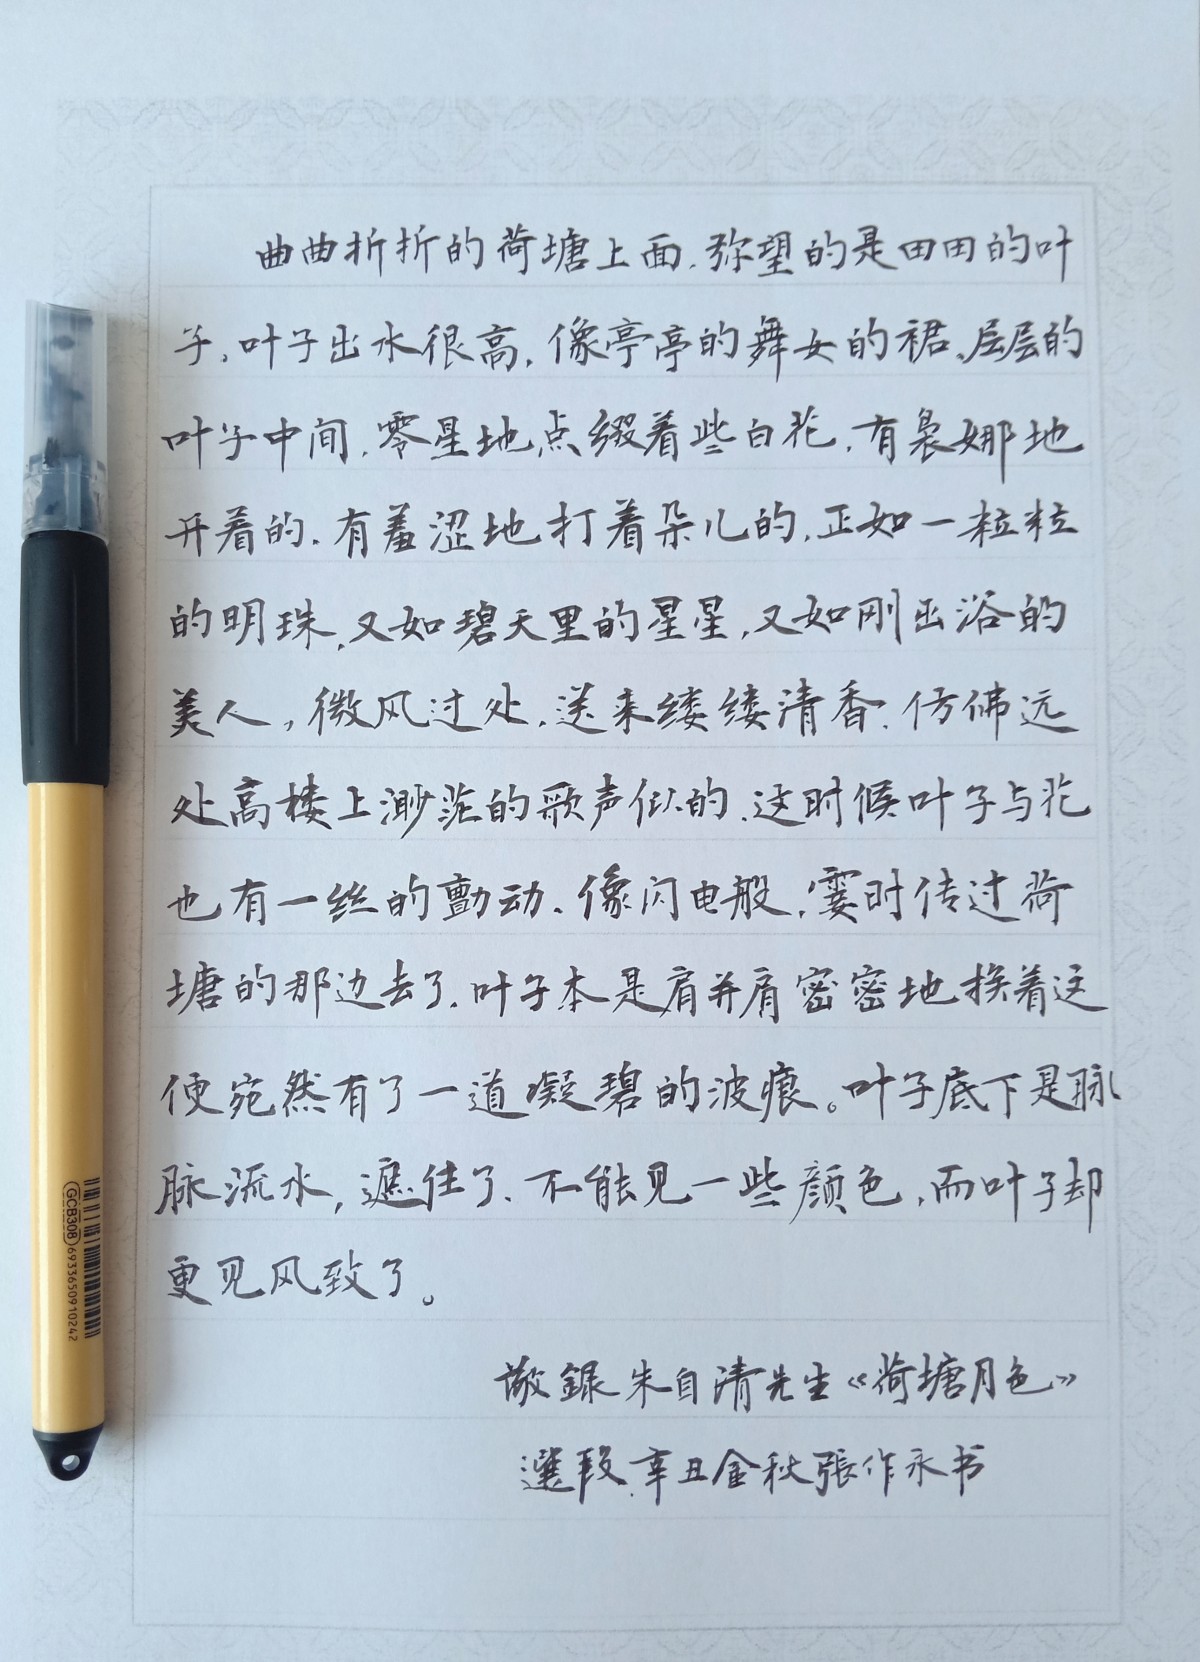 曲曲折折的荷塘上面，弥望的是田田的叶
子，叶子出水很高，像亭亭的舞女的裙、层层的
叶子中间，零星地点缀着些白花，有袅娜地
开着的，有羞涩地打着朵儿的，正如一粒粒
的明珠，又如碧天里的星星，又如刚出浴的
美人，微风过处，送来缕缕清香，仿佛远
处高楼上渺茫的歌声似的，这时候叶子与花
也有一丝的颤动，像闪电般，霎时传过荷
塘的那边去了，叶子本是肩并肩密密地挨着这
便宛然有了一道凝碧的波痕。叶子底下是脉
脉流水，遮住了，不能见一些颜色，而叶子却
更见风致了。
敬録朱自清先生《荷塘月色》
選段.辛丑金秋張作永书
GCB308
6933650910242